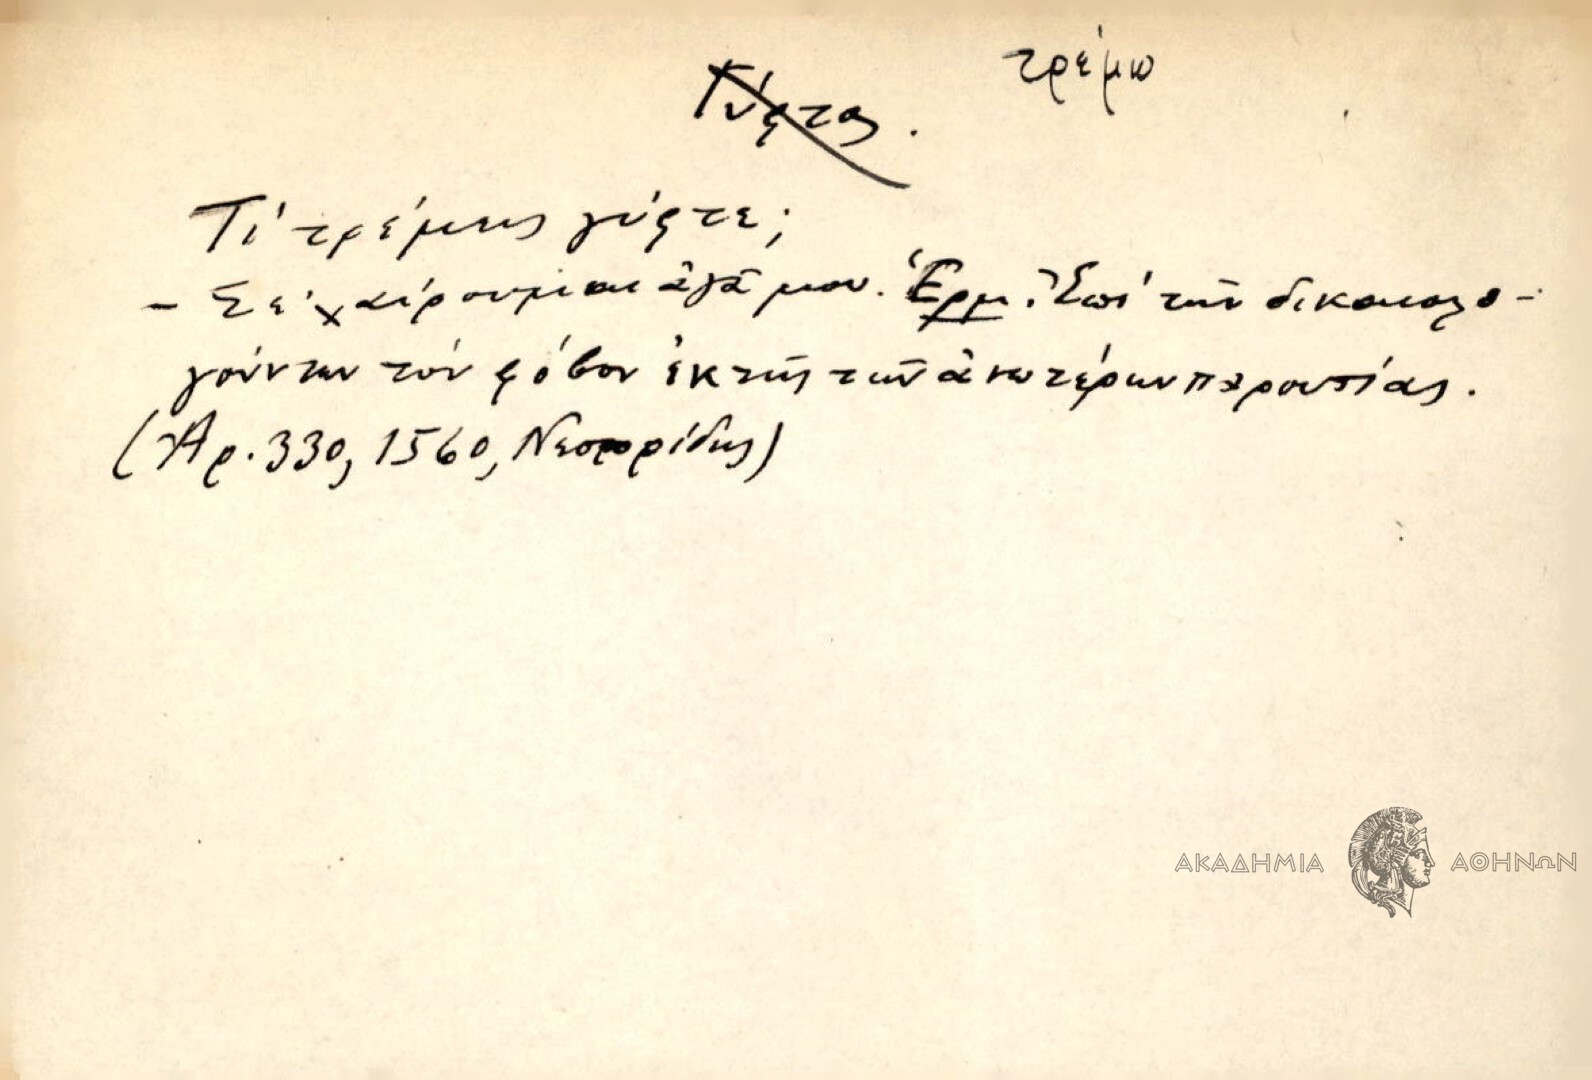 τρέμω
Γύφτος.
Τί τρέμεις γύφτε;
- Σέ χαίρουμαι ἀγᾶ μου. Ἑρμ. Ἐπί τῶν δικαιολο-
γούντων τόν φόβον ἐκ τῆς τῶν ἀνωτέρων παρουσίας.
(Ἀρ. 330, 1560, Νεστορίδης)
ΑΚΑΔΗΜΙΑ ΑΘΗΝΩΝ